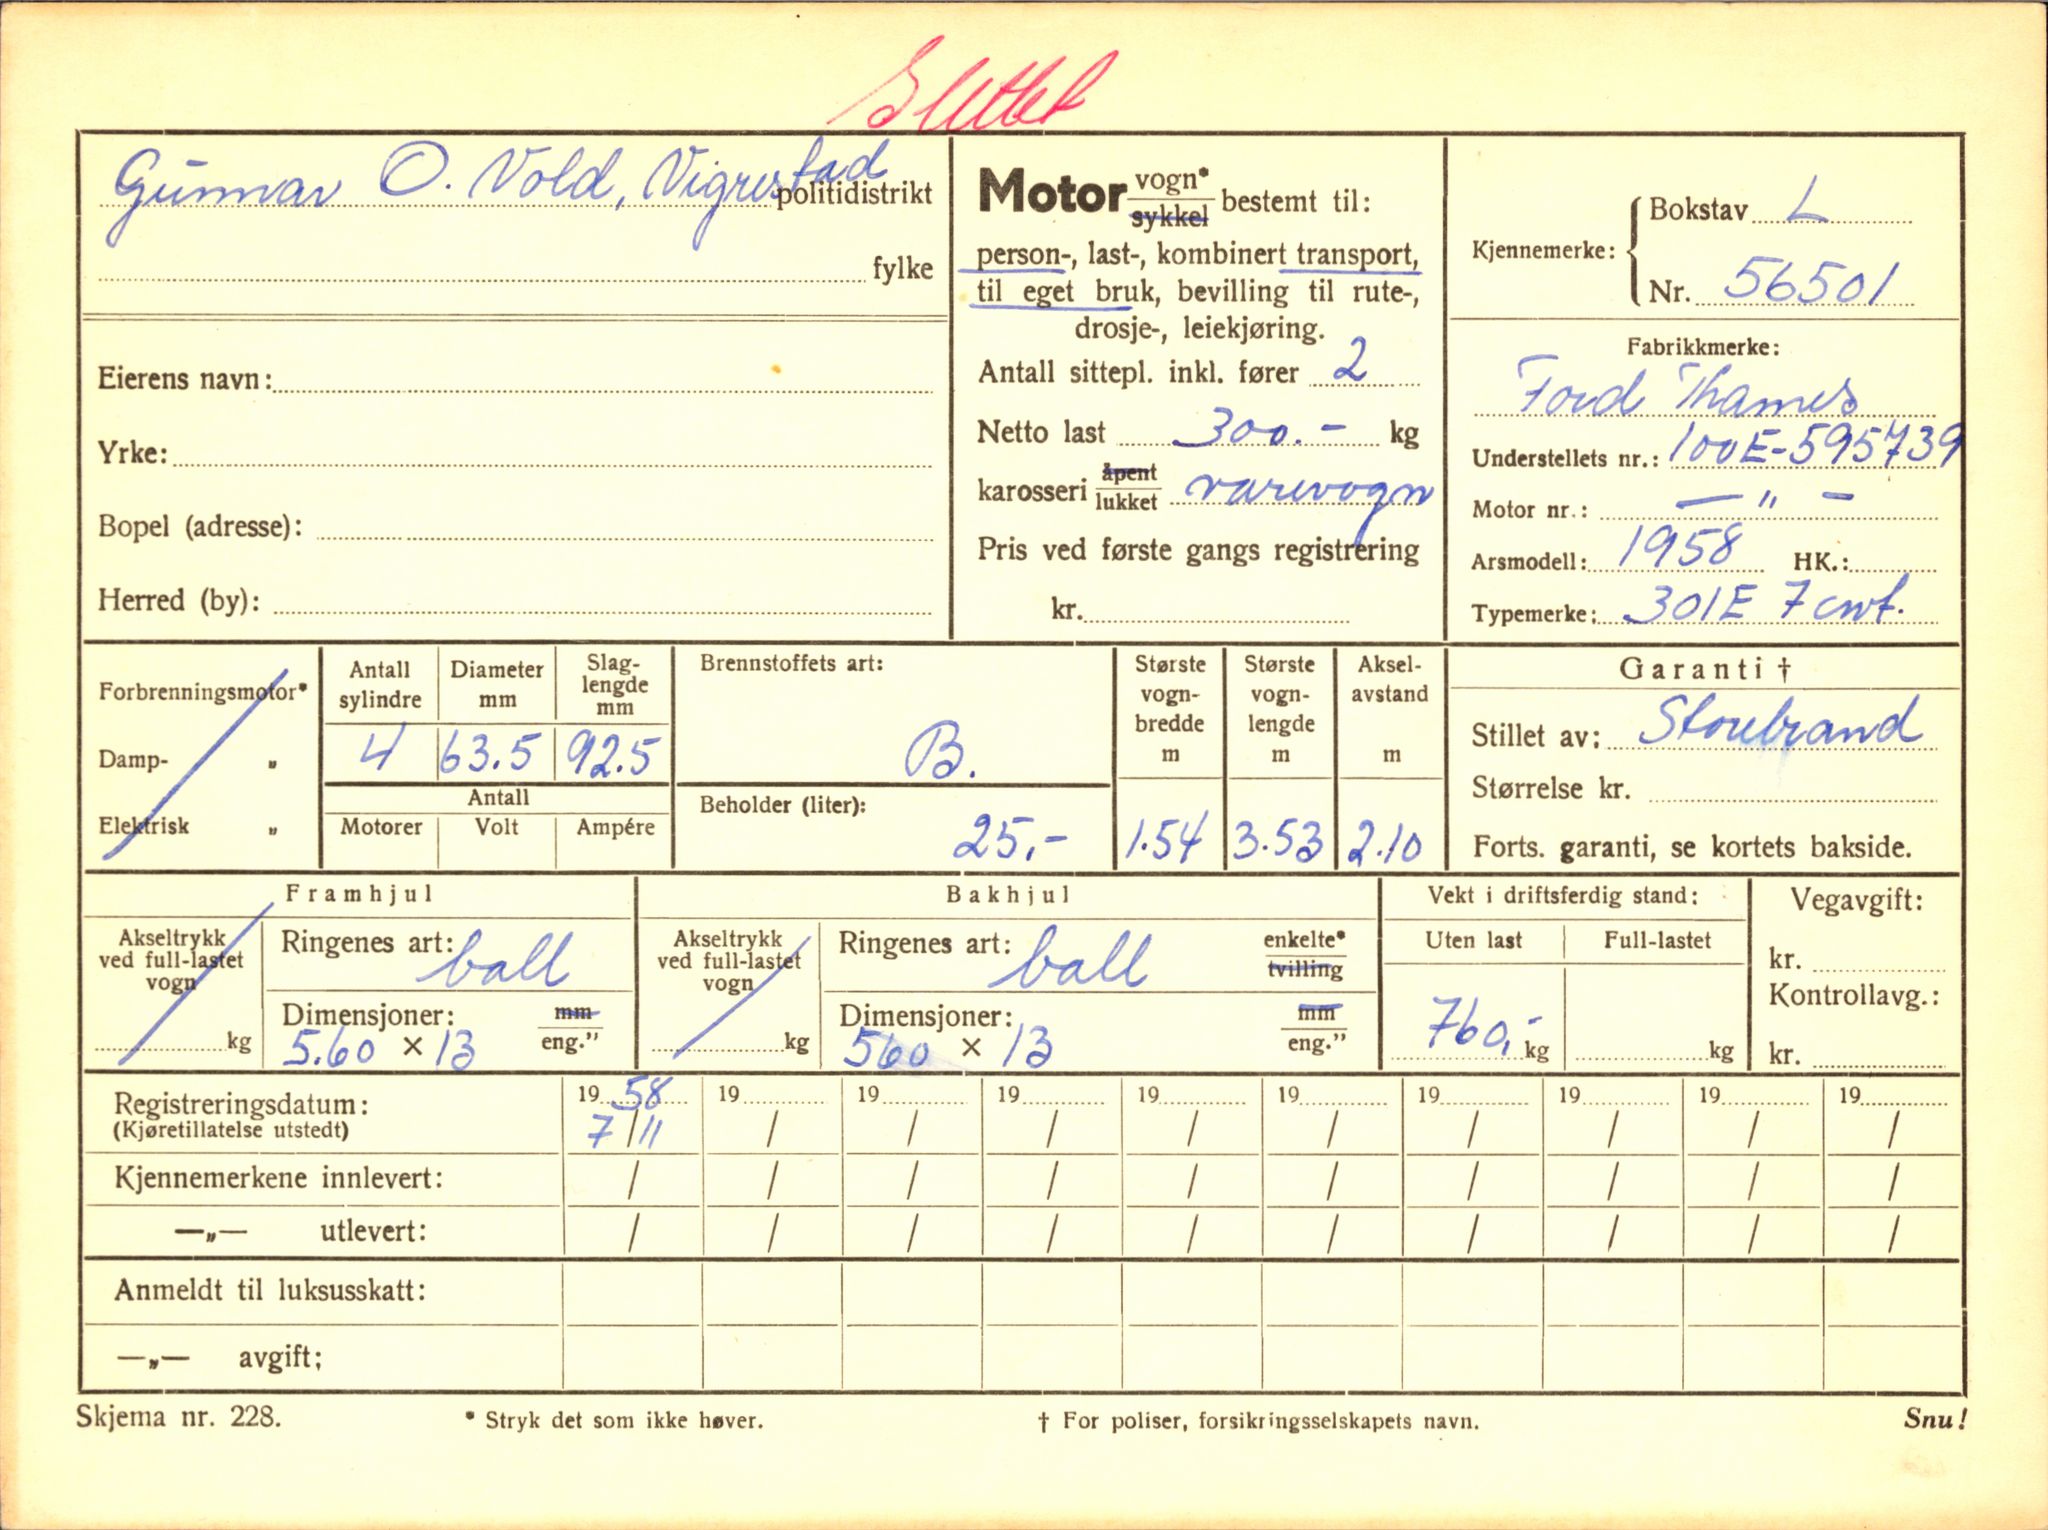 Slettet
Gunnar O. Vold, Vigrestad politidistrikt
fylke
Eierens navn:
Yrke:
Bopel (adresse):
Herred (by):
Motor vogn* sykkel bestemt til:
person-, last-, kombinert transport,
til eget bruk, bevilling til rute-,
drosje-, leiekjøring.
Antall sittepl. inkl. fører 2
Netto last 300.- kg
karosseri åpent lukket varevogn
Pris ved første gangs registrering
kr.
Kjennemerke: Bokstav L
Nr. 56501
Fabrikkmerke:
Ford Thames
Understellets nr.: 100E-595739
Motor nr.: — " —
Arsmodell: 1958 HK.:
Typemerke: 301E 7 cwt.
Forbrenningsmotor*
Damp- „
Elektrisk „
Antall sylindre
Diameter mm
Slag-lengde mm
4 63.5 92.5
Antall
Motorer Volt Ampére
Brennstoffets art:
B.
Beholder (liter):
25,-
Største vogn-bredde m
1.54
Største vogn-lengde m
3.53
Aksel-avstand m
2.10
Garanti †
Stillet av: Storebrand
Størrelse kr.
Forts. garanti, se kortets bakside.
Framhjul
Akseltrykk ved full-lastet vogn
kg
Ringenes art: ball
Dimensjoner: mm eng."
5.60 × 13
Bakhjul
Akseltrykk ved full-lastet vogn
kg
Ringenes art: ball enkelte* tvilling
Dimensjoner: mm eng."
560 × 13
Vekt i driftsferdig stand:
Uten last Full-lastet
760,- kg kg
Vegavgift:
kr.
Kontrollavg.:
kr.
Registreringsdatum: 19 58 19 19 19 19 19 19 19 19 19
(Kjøretillatelse utstedt) 7/11 / / / / / / / / /
Kjennemerkene innlevert: / / / / / / / / / /
—„— utlevert: / / / / / / / / / /
Anmeldt til luksusskatt:
—„— avgift;
Skjema nr. 228. * Stryk det som ikke høver. † For poliser, forsikringsselskapets navn. Snu!